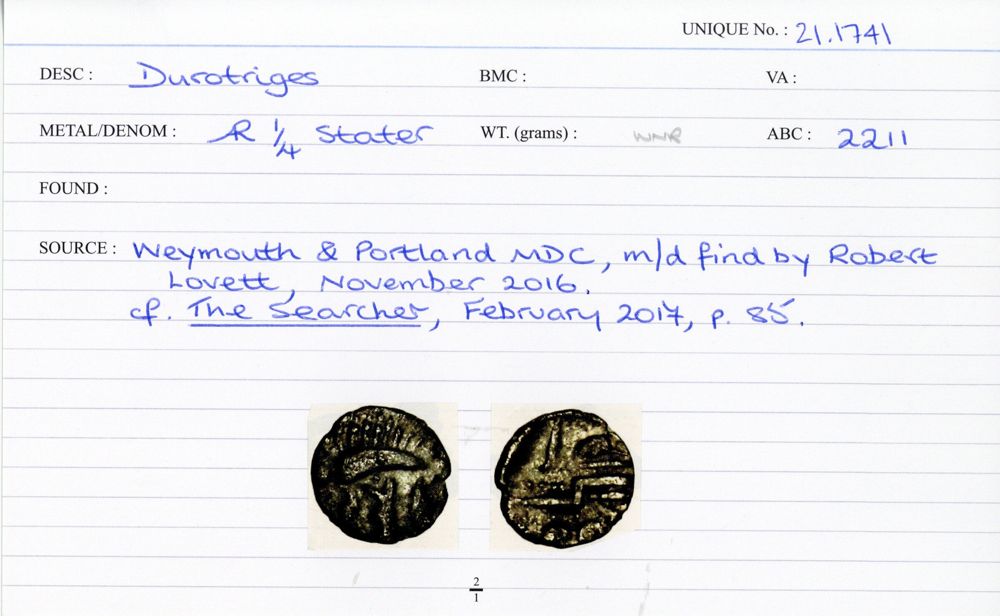 UNIQUE No. : 21.1741
DESC : Durotriges BMC : VA :
METAL/DENOM : AR 1/4 Stater WT. (grams) : WNR ABC : 2211
FOUND :
SOURCE : Weymouth & Portland MDC, m/d find by Robert
Lovett, November 2016.
cf. The Searcher, February 2017, p. 85.
2/1